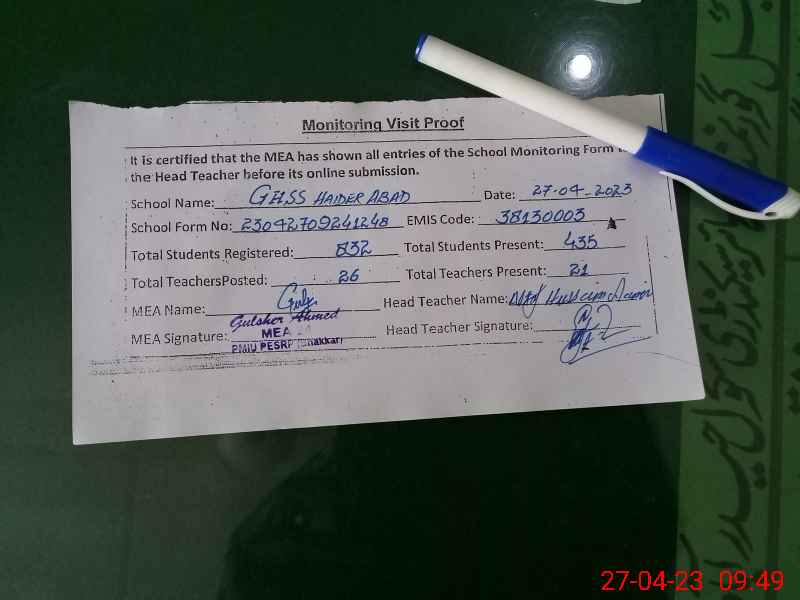 Monitoring Visit Proof
It is certified that the MEA has shown all entries of the School Monitoring Form
the Head Teacher before its online submission.
School Name: GHSS HAIDER ABAD Date: 27-04-2023
School Form No: 23042709241248 EMIS Code: 38130003
Total Students Registered: 832 Total Students Present: 435
Total TeachersPosted: 26 Total Teachers Present: 21
MEA Name: Head Teacher Name: Hussain
Gulsher Ahmed
MEA
MEA Signature: Head Teacher Signature:
PMIU PESRP (Bhakkar)
27-04-23 09:49